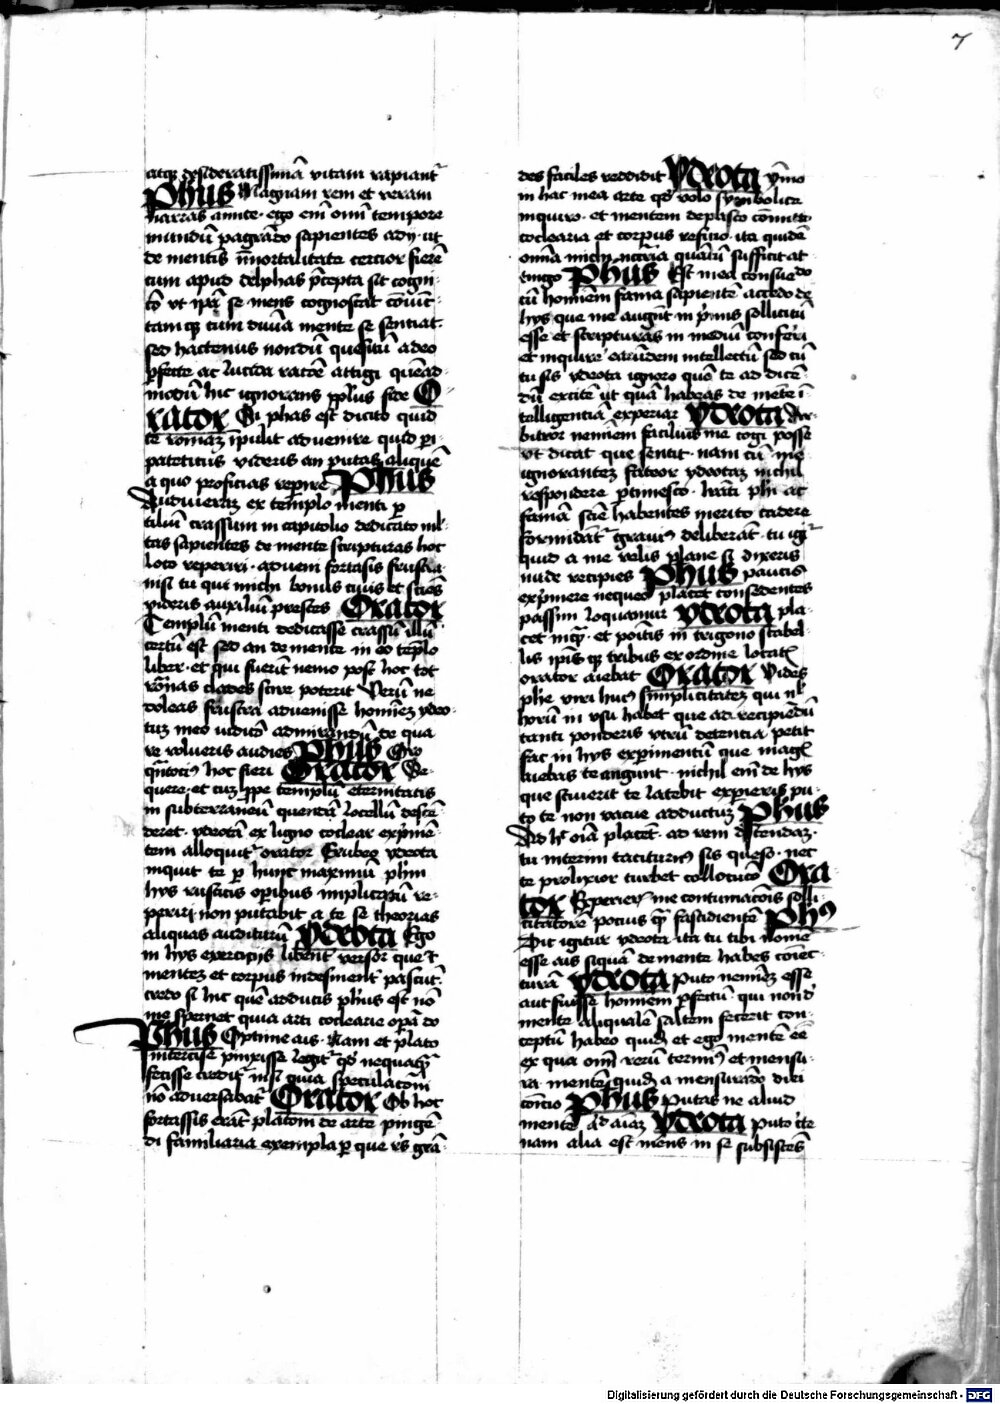 7
atq desideratissimā vitam rapiant᷑
Phus Magnam rem et veram
narras amice · ego em̄ om̄i tempore
mundū pagrādo sapientes adij · ut
de mentis īmortalitate certior fierē
cum apud delphas p̄cepta sit cogni-
tō vt ip̄a se mens cognoscat cōiūc-
tamq cum diuīa mente se sentiat ·
sed hactenus nondū quesitū adeo
p̄fecte ac lucida ratōe attigi quēad-
modū hic ignorans pplūs fide O
rator Qi phas est dicito quid
te romā īpulit aduenire quid p̄i-
pateticus videris an putas aliquē
a quo proficias rep̄ire Phus
Audiueram ex templo menti p
tiliū crassum in capitolio dedicato ml-
tas sapientes de mente scripturas hoc
loco reperiri · adueni fortasis frustra
nisi tu qui michi bonus ciuis et sciēs
videris auxiliū prestes Orator
Templū menti dedicasse crassū illū
certū est sed an de mente in eo tēplo
liber · et qui fuerīt nemo post hoc tot
rōnas clades scire poterit Verū ne
doleas frustra aduenisse homīez ydeo-
tuz meo iuditō admirandū de qua
re volueris audies Phus Oro
q̄ntoci9 hoc fieri Orator Se-
quere · et cuz p̄pe templū eternitatis
in subterraneū quendā locellū descē-
deret · ydeotā ex lugno coclear exp̄mē-
tem alloquit᷑ orator Erubeo ydeota
inquit te p hunc maximū ph̄m
hijs rusticis op̄ibus implicitū re-
periri non putabit a te se theorias
aliquas auditurū Ydeota Ego
in hijs exercicijs libent᷑ versor que et
mentez et corpus indesinent᷑ pascūt ·
credo si hic quē adducis ph̄us est nō
me spernet quia arti coclearie opā do
Phus Optime ais · Nam et plato
intercise pinxisse legit᷑ qd̄ nequaq̄
fecisse credit᷑ nisi quia speculatōni
nō aduersabat᷑ Orator Ob hoc
fortassis erāt platoni de arte pingē-
di familiaria exempla p que r̄s grā-
des faciles reddidit Ydeota ymo
in hac mea arte qd̄ volo symbolice
inquiro · et mentem depasco cōmuto
coclearia et corpus reficio · ita quidē
om̄ia michi nc̄ria quātū sufficit at-
tingo Phus Est mea consuetdo
cū hominem fama sapientē accedo de
hijs que me angūt in p̄mis sollicitū
esse et scripturas in mediū conferri
et inquire earūdem intellectū sed cū
tu sis ydeota ignoro quō te ad dicē-
dū excitē ut quā habeas de mēte ī-
telligentiā experiar Ydeota Ar-
bitror neminem facilius me cogi posse
vt dicat que sentit · nam cū me
ignorantez fateor ydeotaz nichil
respondere p̄timesco · lrāti ph̄i ac
famā sciē habentes merito cadere
formidāt᷑ graui9 deliberāt · tu igi᷑
quid a me velis plane si dixeris
nude recipies Phus paucis
exp̄mere nequeo placet consedentes
passim loquamur Ydeota pla-
cet inq̄ · et positis in trigono scabel-
lis ip̄is q tribus ex ordine locatis
orator aiebat Orator Vides
ph̄e viri hui9 simplicitatez qui nl
horū in vsu habet que ad recipiēdū
tanti ponderis virū decentia petit
fac in hijs experimentū que magis
aiebas te angunt · nichil em̄ de hijs
que sciuerit te latebit experieris pu-
to te non vacue adductuz Phus
Ad h̄c oīa placēt · ad rem descendaz ·
tu interim taciturn9 sis queso · nec
te prolixior turbet collocutō Ora-
tor Experier᷑ me continuacōis solli-
citatorē pocius q̄ fastidientē Ph9
Dic igitur ydeota ita tu tibi nomē
esse ais siquā de mente habes cōiec-
turā Ydeota Puto neminez esse
aut fuisse hominem p̄fectū · qui non d
mente aliqualē saltem fecerit con-
ceptū habeo quidē et ego mentē eē
ex qua om̄i rerū termin9 et mensu-
ra mentē quidē a mensurādo dici
cōicio Phus Putas ne aliud
mentē ad aīaz Ydeota Puto c̄te
nam alia est mens in se subsistēs
Digitalisierung gefördert durch die Deutsche Forschungsgemeinschaft - DFG